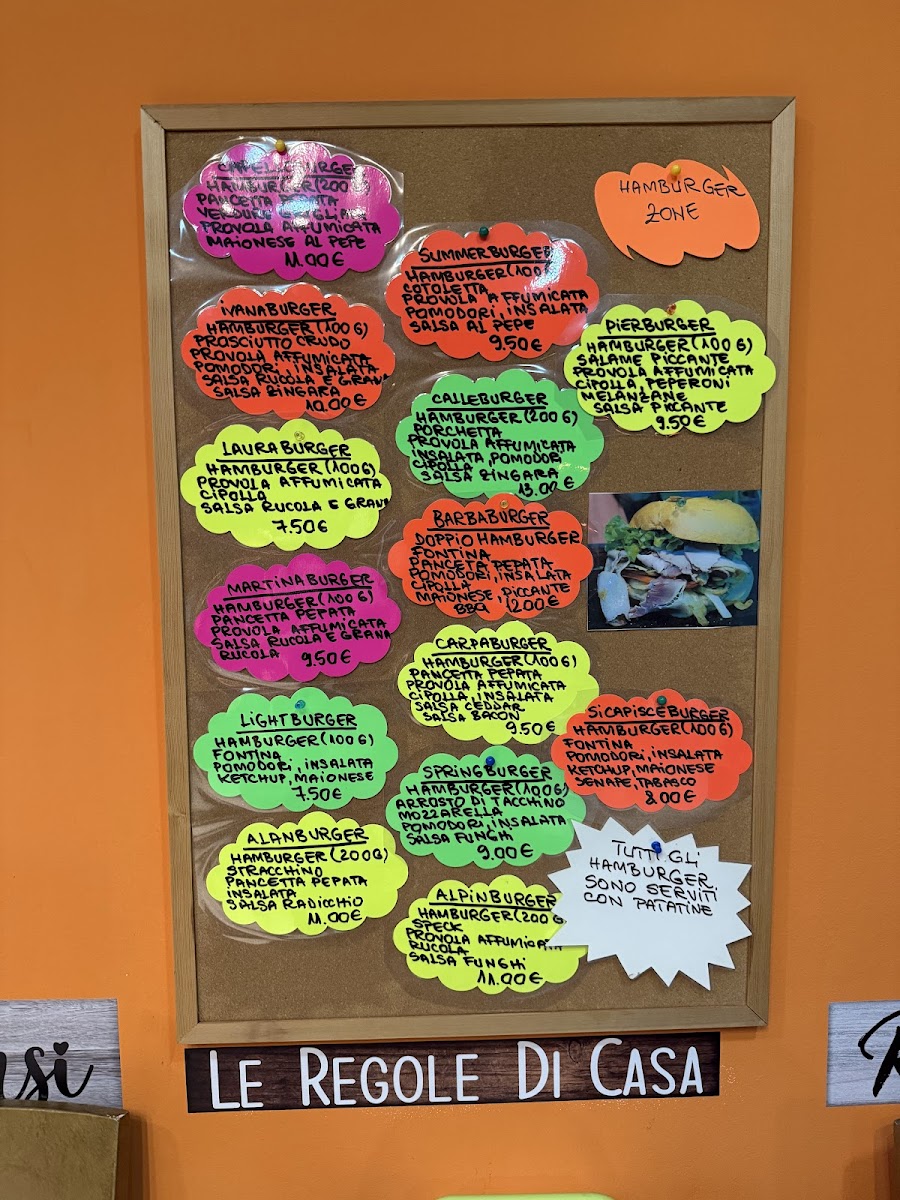 HAMBURGER(200G)
PANCETTA PEPATA
PROVOLA AFFUMICATA
MAIONESE AL PEPE
11.00€
IVANABURGER
HAMBURGER(100G)
PROSCIUTTO CRUDO
PROVOLA AFFUMICATA
POMODORI, INSALATA
SALSA RUCOLA E GRANA
SALSA ZINGARA
10.00€
LAURABURGER
HAMBURGER(100G)
PROVOLA AFFUMICATA
CIPOLLA
SALSA RUCOLA E GRANA
7.50€
MARTINABURGER
HAMBURGER(100G)
PANCETTA PEPATA
PROVOLA AFFUMICATA
SALSA RUCOLA E GRANA
RUCOLA 9.50€
LIGHTBURGER
HAMBURGER(100G)
FONTINA
POMODORI, INSALATA
KETCHUP, MAIONESE
7.50€
ALANBURGER
HAMBURGER(200G)
STRACCHINO
PANCETTA PEPATA
INSALATA
SALSA RADICCHIO
11.00€
SUMMERBURGER
HAMBURGER(100G)
COTOLETTA
PROVOLA AFFUMICATA
POMODORI, INSALATA
SALSA AL PEPE
9.50€
CALLEBURGER
HAMBURGER(200G)
PORCHETTA
PROVOLA AFFUMICATA
INSALATA, POMODORI
CIPOLLA
SALSA ZINGARA
13.00€
BARBABURGER
DOPPIO HAMBURGER
FONTINA
PANCETA PEPATA
POMODORI, INSALATA
CIPOLLA
MAIONESE, PICCANTE
BBQ 12.00€
CARPABURGER
HAMBURGER(100G)
PANCETTA PEPATA
PROVOLA AFFUMICATA
CIPOLLA, INSALATA
SALSA CEDDAR
SALSA BACON
9.50€
SPRINGBURGER
HAMBURGER(100G)
ARROSTO DI TACCHINO
MOZZARELLA
POMODORI, INSALATA
SALSA FUNGHI
9.00€
ALPINBURGER
HAMBURGER(200G
SPECK
PROVOLA AFFUMICATA
RUCOLA
SALSA FUNGHI
11.00€
HAMBURGER
ZONE
PIERBURGER
HAMBURGER(100G)
SALAME PICCANTE
PROVOLA AFFUMICATA
CIPOLLA, PEPERONI
MELANZANE
SALSA PICCANTE
9.50€
SICAPISCEBURGER
HAMBURGER(100G)
FONTINA
POMODORI, INSALATA
KETCHUP, MAIONESE
SENAPE, TABASCO
8.00€
TUTTI GLI
HAMBURGER
SONO SERVITI
CON PATATINE
LE REGOLE DI CASA